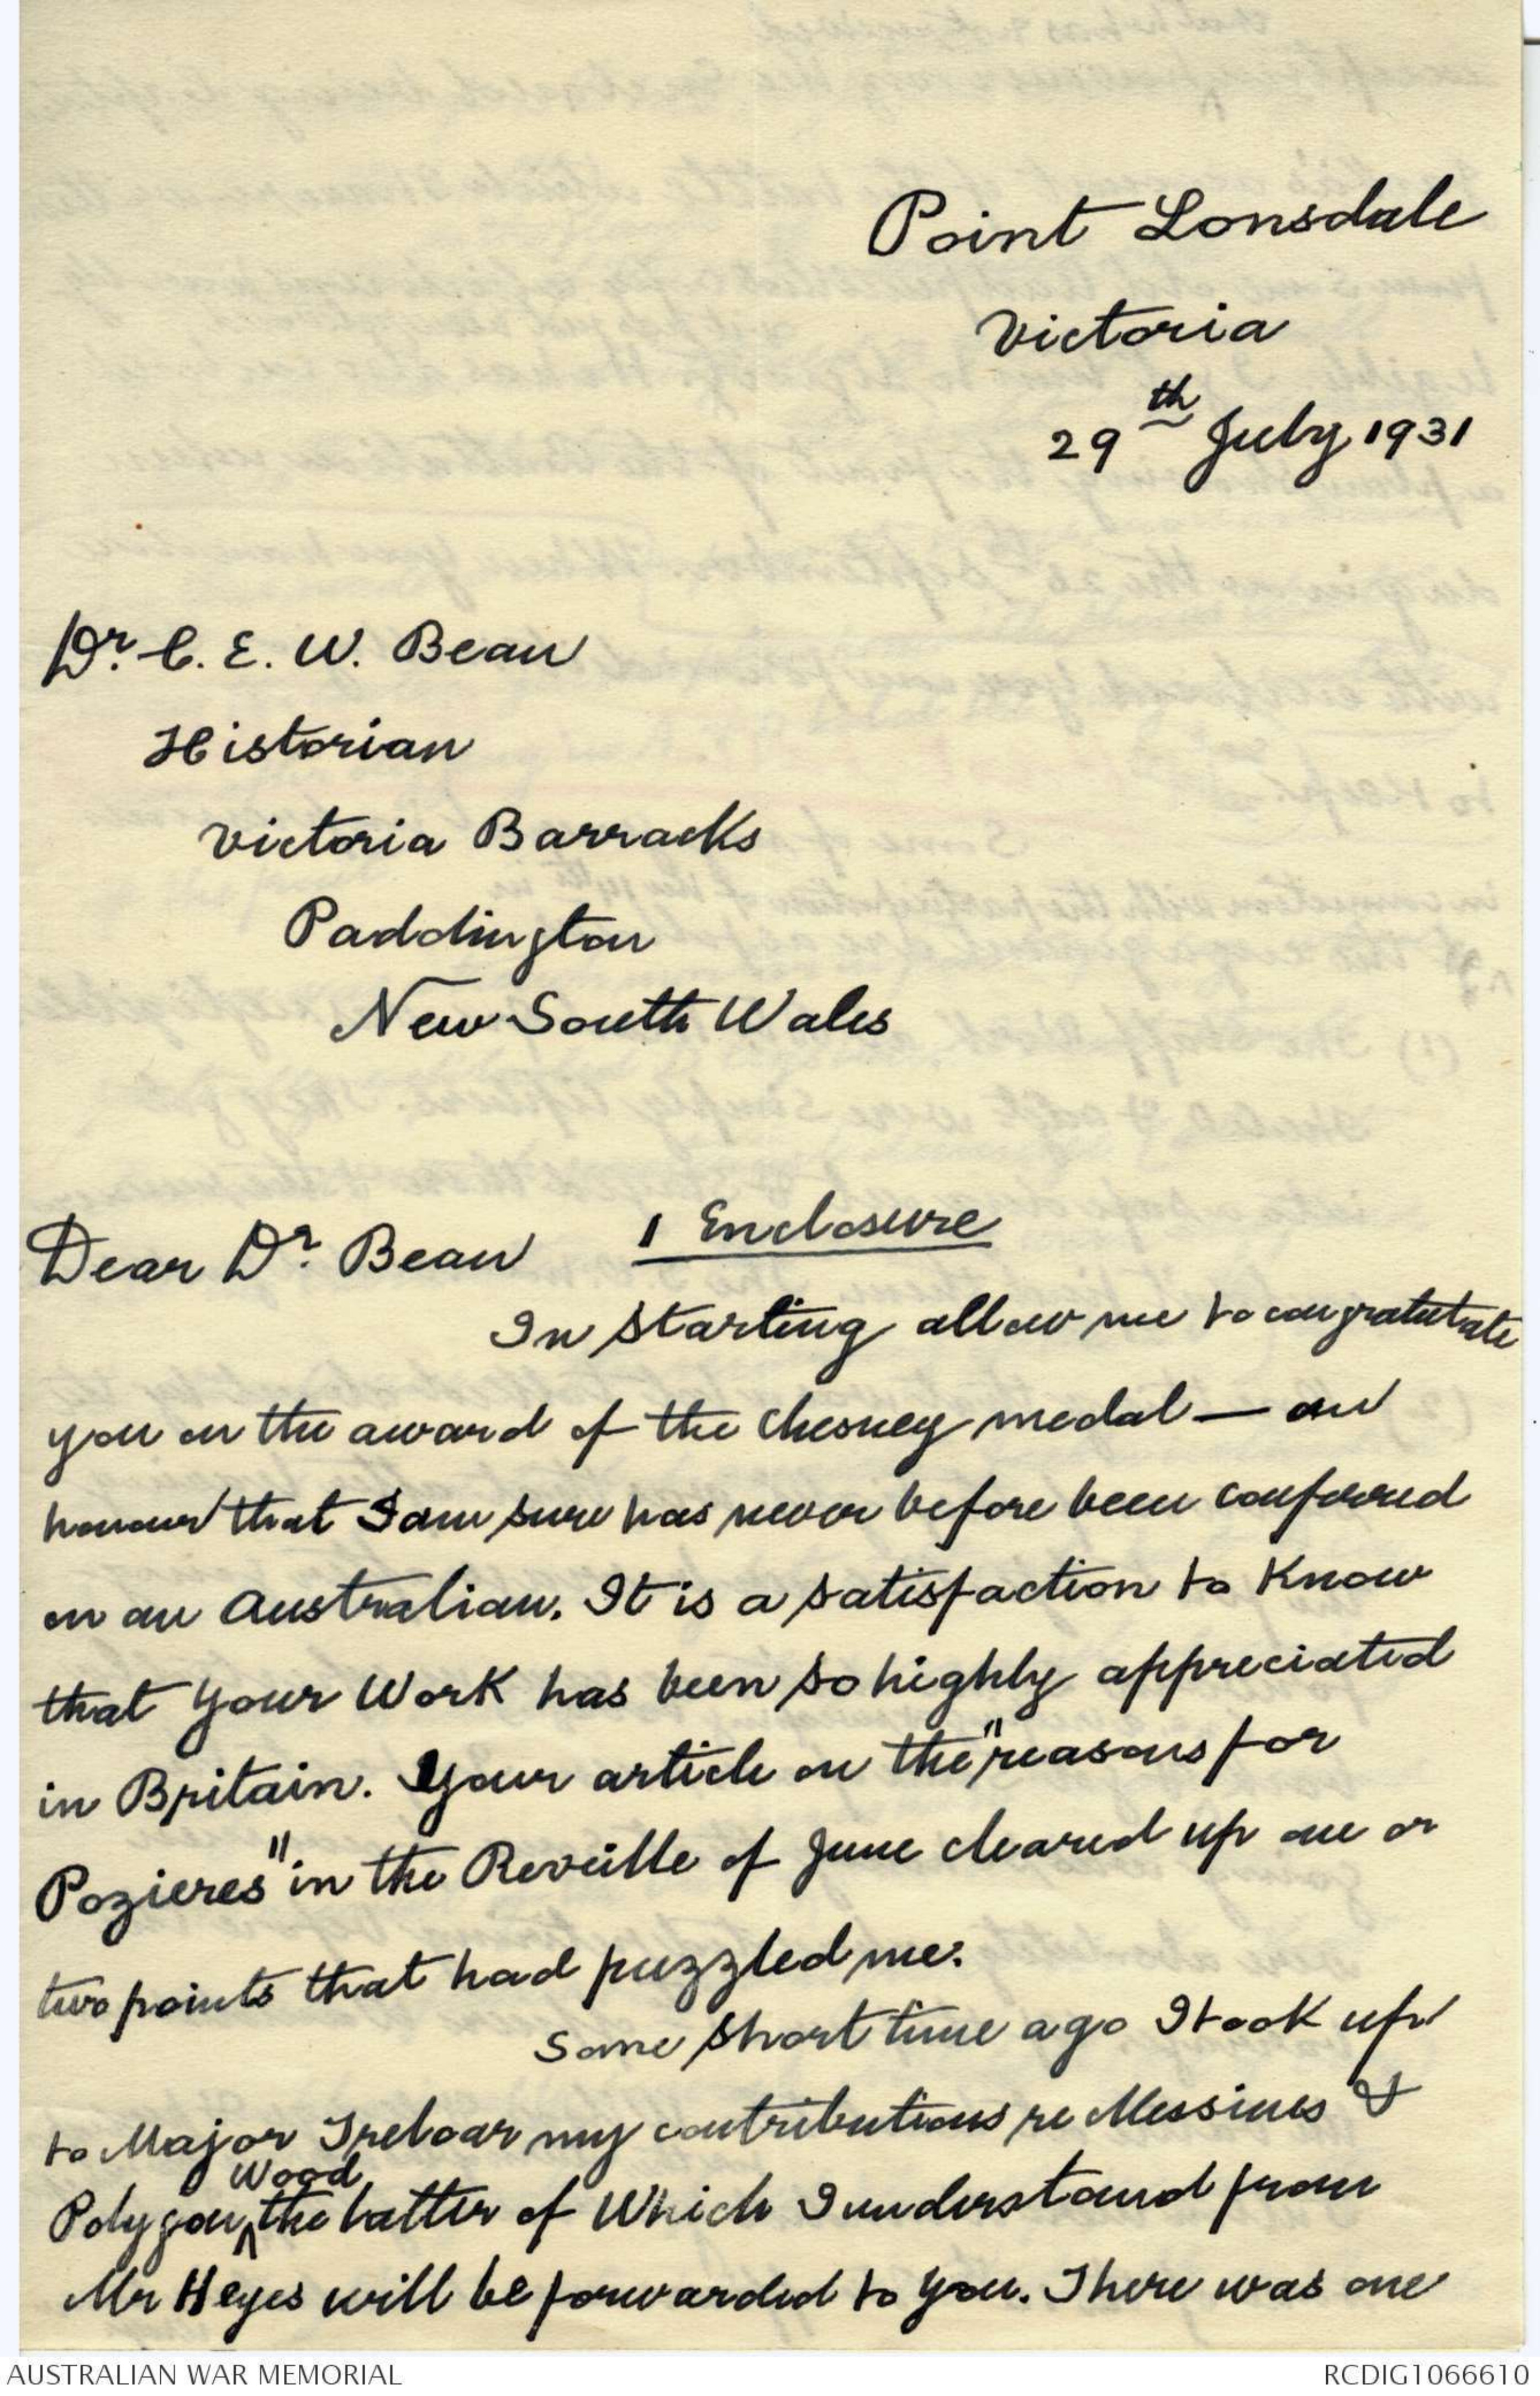 Point Lonsdale
Victoria
29th July 1931
Dr. C. E. W. Bean
Historian
Victoria Barracks
Paddington
New South Wales
Dear Dr. Bean 1 Enclosure
In starting allow me to congratulate
you on the award of the Chesney medal — an
honour that I am sure has never before been conferred
on an Australian. It is a satisfaction to know
that your work has been so highly appreciated
in Britain. Your article on the "reasons for
Pozieres" in the Reveille of June cleared up one or
two points that had puzzled me.
Some short time ago I took up
to Major Treloar my contributions re Messines &
Polygon Wood, the latter of which I understand from
Mr Heyes will be forwarded to you. There was one
AUSTRALIAN WAR MEMORIAL
RCDIG1066610